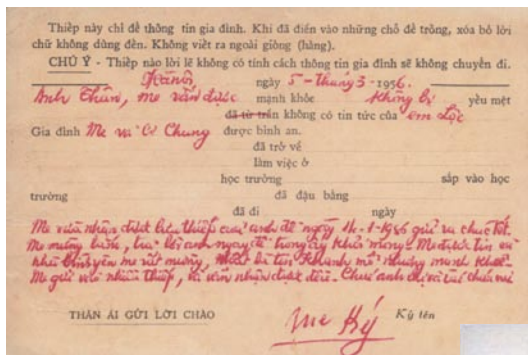 Thiếp này chỉ để thông tin gia đình. Khi đã điền vào những chỗ để trống, xóa bỏ lời
chữ không dùng đến. Không viết ra ngoài giòng (hàng).
CHÚ Ý - Thiếp nào lời lẽ không có tính cách thông tin gia đình sẽ không chuyển đi.
Hànội ngày 5 - tháng 3 - 1956.
Anh Thân, me vẫn được mạnh khỏe không bị yếu mệt
đã từ trần không có tin tức của em Lộc
Gia đình Me và Chung được bình an.
đã trở về
làm việc ở
học trường sắp vào học
trường đã đậu bằng
đã đi ngày
Me vừa nhận được thiếp của anh đề ngày 4-1-1956 gửi ra chúc tết.
Me mừng, lời anh ngay để trong ấy khỏi mong. Me được tin
yên me rất mừng, mà tin Khanh mạnh khoẻ.
Me gửi vào nhiều thiếp, nhận được đều. Chúc anh chị và các cháu vui
THÂN ÁI GỬI LỜI CHÀO Me Ký Ký tên